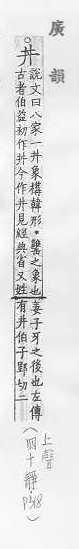 廣韻
井 說文曰八家一井象構韓形·䍌之象也
古者伯益初作井今作井見經典省又姓姜子牙之後也左傳
有井伯子郢切二
上聲
四十靜
P318